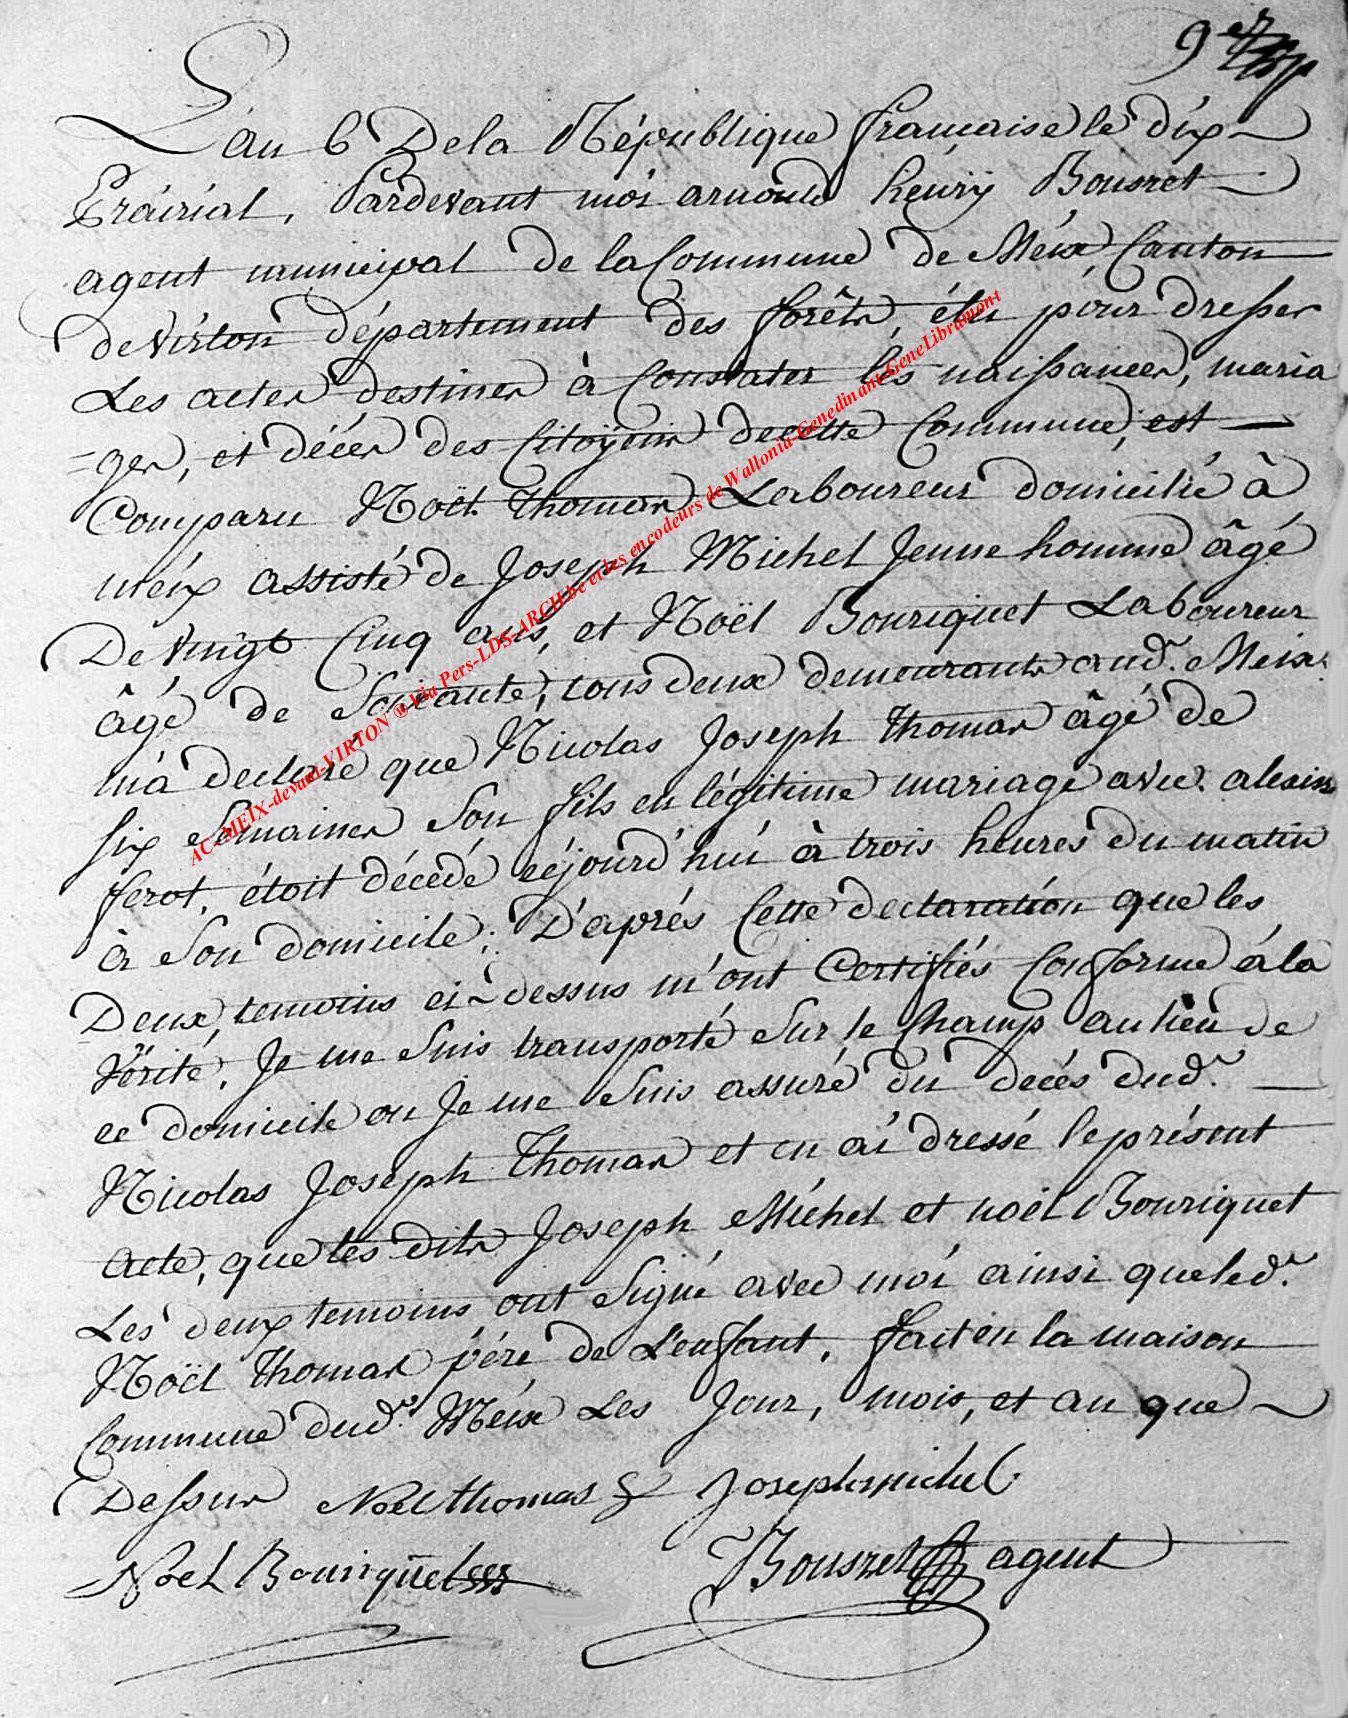 9er
L'an 6 De la République française le dix
Prairial, Pardevant moi arnould henrÿ Bousret
agent municipal de la Commune de Méix, Canton
de Virton département des forêts, élu pour dresser
Les actes destines à Constater les naissances, maria
ges, et décés des Citoÿens de cette Commune, est
Comparu Noël thomas Laboureur domicilié à
méix assisté de Joseph Michel Jeune homme âgé
De Vingt Cinq ans, et Noël Bouriquet Laboureur
âgé de Soixante, tous deux demeurants aud.t Meix.
m'a declaré que Nicolas Joseph thomas âgé de
six Semaines Son fils en légitime mariage avec
ferot, étoit décédé cejourd'hui à trois heures du matin
à Son domicile; D'aprés Cette declaration que les
Deux temoins ci-dessus m'ont Certifiés Conforme á la
Vérité, Je me Suis transporté Sur le Champ au lieu de
ce domicile ou Je me Suis assuré du decés dud.t
Nicolas Joseph Thomas et en ai dressé le présent
acte, que les dits Joseph Michel et noël Bouriquet
Les deux temoins ont Signé avec moi ainsi que led.t
Noël thomas pére de L'enfant, fait en la maison
Commune dud.t Méix Les Jour, mois, et an que
Dessus Noel thomas Joseph michel
Noel Bouriquet Bousret agent
AC-MEIX-devant-VIRTON ® Via Pers-LDS-ARCH.be et les encodeurs de Wallonia-Genedinant-GeneLibramont